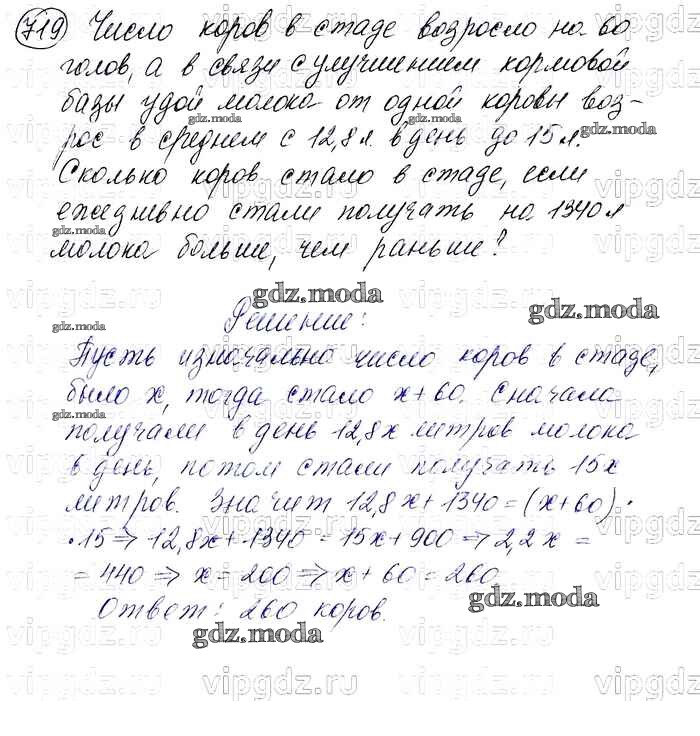 719 Число коров в стаде возросло на 60
голов, а в связи с улучшением кормовой
базы удой молока от одной коровы воз-
рос в среднем с 12,8 л. в день до 15 л.
Сколько коров стало в стаде, если
ежедневно стали получать на 1340 л
молока больше, чем раньше?
Решение:
Пусть изначально число коров в стаде,
было x, тогда стало x+60. Сначала
получали в день 12,8x литров молока
в день, потом стали получать 15x
литров. Значит 12,8x+1340=(x+60)·
·15⇒12,8x+1340=15x+900⇒2,2x=
=440⇒x=200⇒x+60=260
Ответ: 260 коров.
gdz.moda
vipgdz.ru